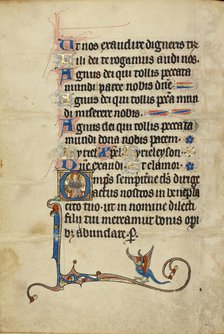 Ut nos exaudire digneris te
fili dei te rogamus audi nos
Agnus dei qui tollis peccata
mundi parce nobis dñe
Agnus dei qui tollis pc̃ca mun
di miserere nobis
Agnus dei qui tollis peccata
mundi dona nobis pacem
kyriel xp̃el kyrieleyson
Dñe exaudi Et clamor
Omp̃s sempiterne ds dirige
actus nostros in beneplã
cito tuo ut in nomine dilecti
filii tui mereamur bonis opi
b; abundare p̃